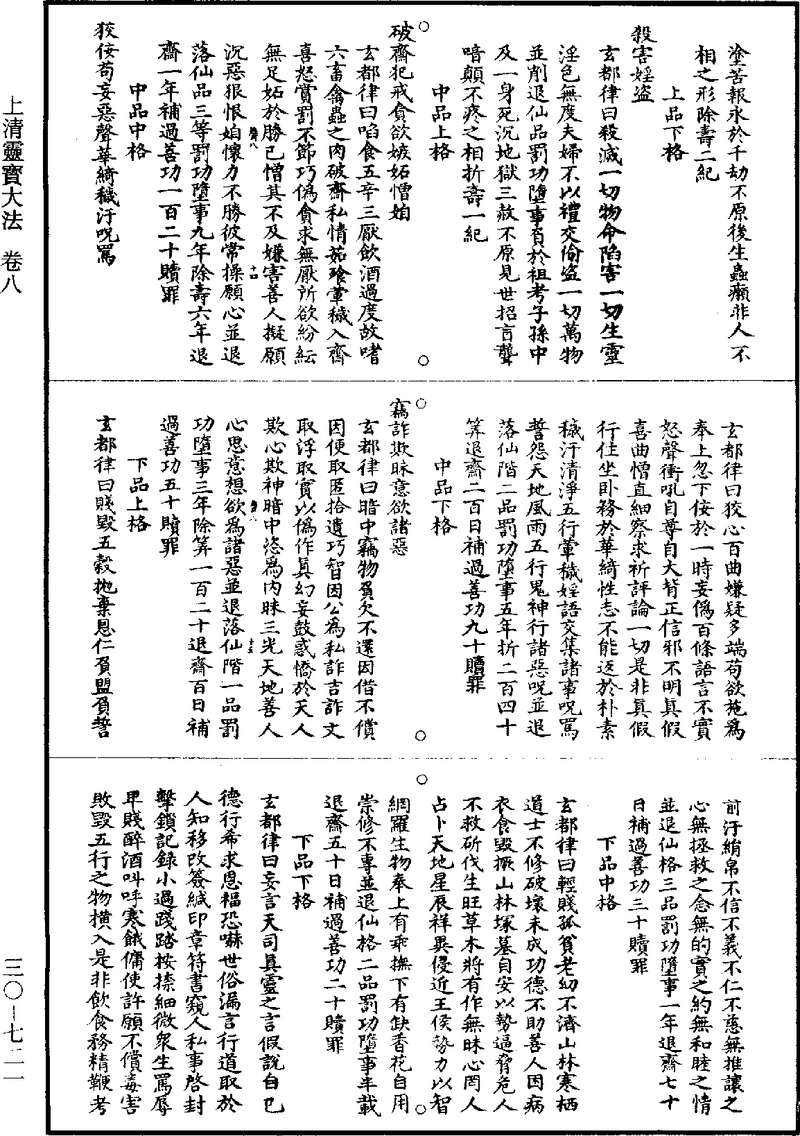 塗苦報永於千劫不原後生蟲癩非人不
相之形除壽二紀
上品下格
殺害婬盜
玄都律曰殺滅一切物命陷害一切生靈
淫色無度夫婦不以禮交偷盜一切萬物
並削退仙品罰功墮事負於祖考子孫中
及一身死沉地獄三赦不原見世招言聾
喑顛不疼之相折壽一紀
中品上格
破齋犯戒貪欲嫉妬憎姮
玄都律曰啗食五辛三厭飲酒過度故嗜
六畜禽蟲之肉破齋私情茹飱葷穢入齊
喜怒賞罰不節巧偽貪求無厭所欲紛紜
無足妬於勝己憎其不及嫌害善人擬願
沉惡狠恨姮懷力不勝彼常操願心並退
落仙品三等罰功墮事九年除壽六年退
齋一年補過善功一百二十贖罪
中品中格
狡侫苟妄惡聲華綺穢汙呪罵
玄都律曰狡心百曲嫌疑多端苟欲施為
奉上忽下侫於一時妄偽百條語言不實
怒聲衝吼自尊自大背正信邪不明真假
喜曲憎直細察求祈評論一切是非真假
行住坐卧務於華綺性志不能返於朴素
穢汙清淨五行葷穢婬語交集諸事呪罵
誓怨天地風雨五行鬼神行諸惡呪並退
落仙階二品罰功墮事五年折二百四十
筭退齋二百日補過善功九十贖罪
中品下格
竊詐欺昧意欲諸惡
玄都律曰暗中竊物負欠不還因借不償
因便取匿拾遺巧智因公為私詐吉詐文
取浮取實以偽作真幻妄鼓惑憍於天人
欺心欺神暗中恣為內昧三光天地善人
心思意想欲為諸惡並退落仙階一品罰
功墮事三年除筭一百二十退齋百日補
過善功五十贖罪
下品上格
玄都律曰賤毀五穀拋棄恩仁負盟負誓
前汙綃帛不信不義不仁不慈無推讓之
心無拯救之念無的實之約無和睦之情
並退仙格三品罰功墮事一年退齋七十
日補過善功三十贖罪
下品中格
玄都律曰輕賤孤貧老幼不濟山林寒栖
道士不修破壞未成功德不助善人因病
衣食毀撅山林塚墓自安以勢逼脅危人
不救斫伐生旺草木將有作無昧心罔人
占卜天地星辰祥異侵近王侯勢力以智
網羅生物奉上有乖撫下有缺香花自用
崇修不專並退仙格二品罰功墮事半載
退齋五十日補過善功二十贖罪
下品下格
玄都律曰妄言天司真靈之言假說自己
德行希求恩福恐嚇世俗漏言行道取於
人知移改簽緘印章符書窺人私事啓封
擊鎖記錄小過踐踏按捺細微衆生罵辱
卑賤醉酒叫呼寒餓傭使許願不償毒害
敗毀五行之物橫入是非飲食務精鞭考
上清靈寶大法　卷八
三〇－七二一